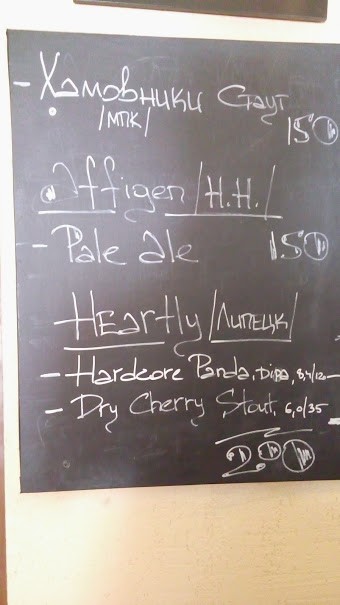 - Хамовники Стаут
/МПК/
150
Affigen /Н.Н./
- Pale ale 150
Heartly /Липецк/
- Hardcore Panda, DIPA, 8,4/120 -
- Dry Cherry Stout, 6,0/35
200